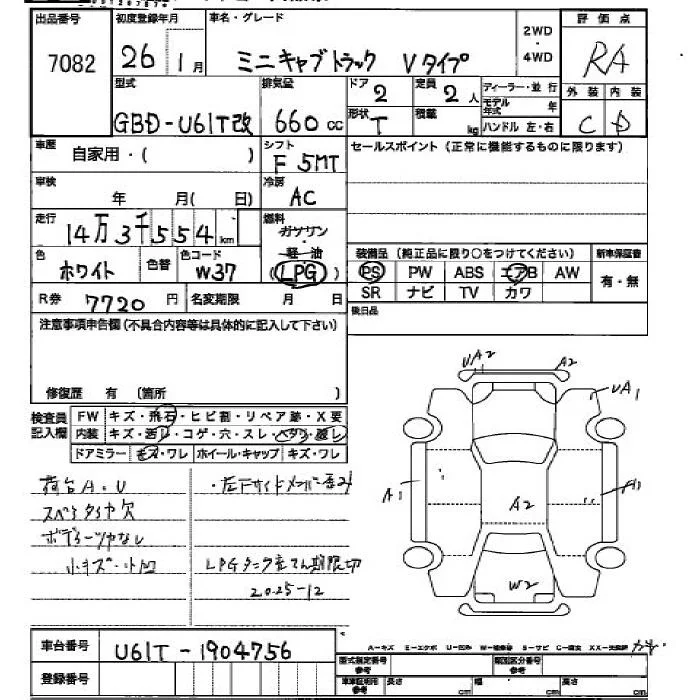 出品番号 7082
初度登録年月 26 1月
車名・グレード ミニキャブトラック Vタイプ
2WD・4WD
評価点 RA
型式 GBD-U61T改
排気量 660 cc
ドア 2
形状 T
定員 2人
積載 kg
ディーラー・並行
モデル年式 年
ハンドル 左・右
外装 C
内装 D
車歴 自家用・( )
シフト F 5MT
セールスポイント(正常に機能するものに限ります)
車検 年 月( 日)
冷房 AC
走行 14万3千554km
燃料 ガソリン・軽油 (LPG)
色 ホワイト
色替
色コード W37
装備品(純正品に限り○をつけてください)
PS PW ABS エアB AW
SR ナビ TV カワ
新車保証書 有・無
R券 7720円
名変期限 月 日
後日品
注意事項申告欄(不具合内容等は具体的に記入して下さい)
修復歴 有 〔箇所 〕
検査員記入欄
FW キズ・飛石・ヒビ割・リペア跡・X要
内装 キズ・汚レ・コゲ・穴・スレ・ヘタリ・破レ
ドアミラー キズ・ワレ ホイール・キャップ キズ・ワレ
荷台A・U
スペアタイヤ欠
ボデーツヤなし
小キズ・小凹
・左F サイドメンバー歪み
LPGタンク 期限切
2025-12
UA2
A2
UA1
A1
A2
A1
W2
車台番号 U61T-1904756
登録番号
A-キズ E-エクボ U-凹み W-補修巻 S-サビ C-腐食 XX-交換歴
型式指定番号 参考
類別区分番号 参考
車車証明用 参考 長さ cm 幅 cm 高さ cm